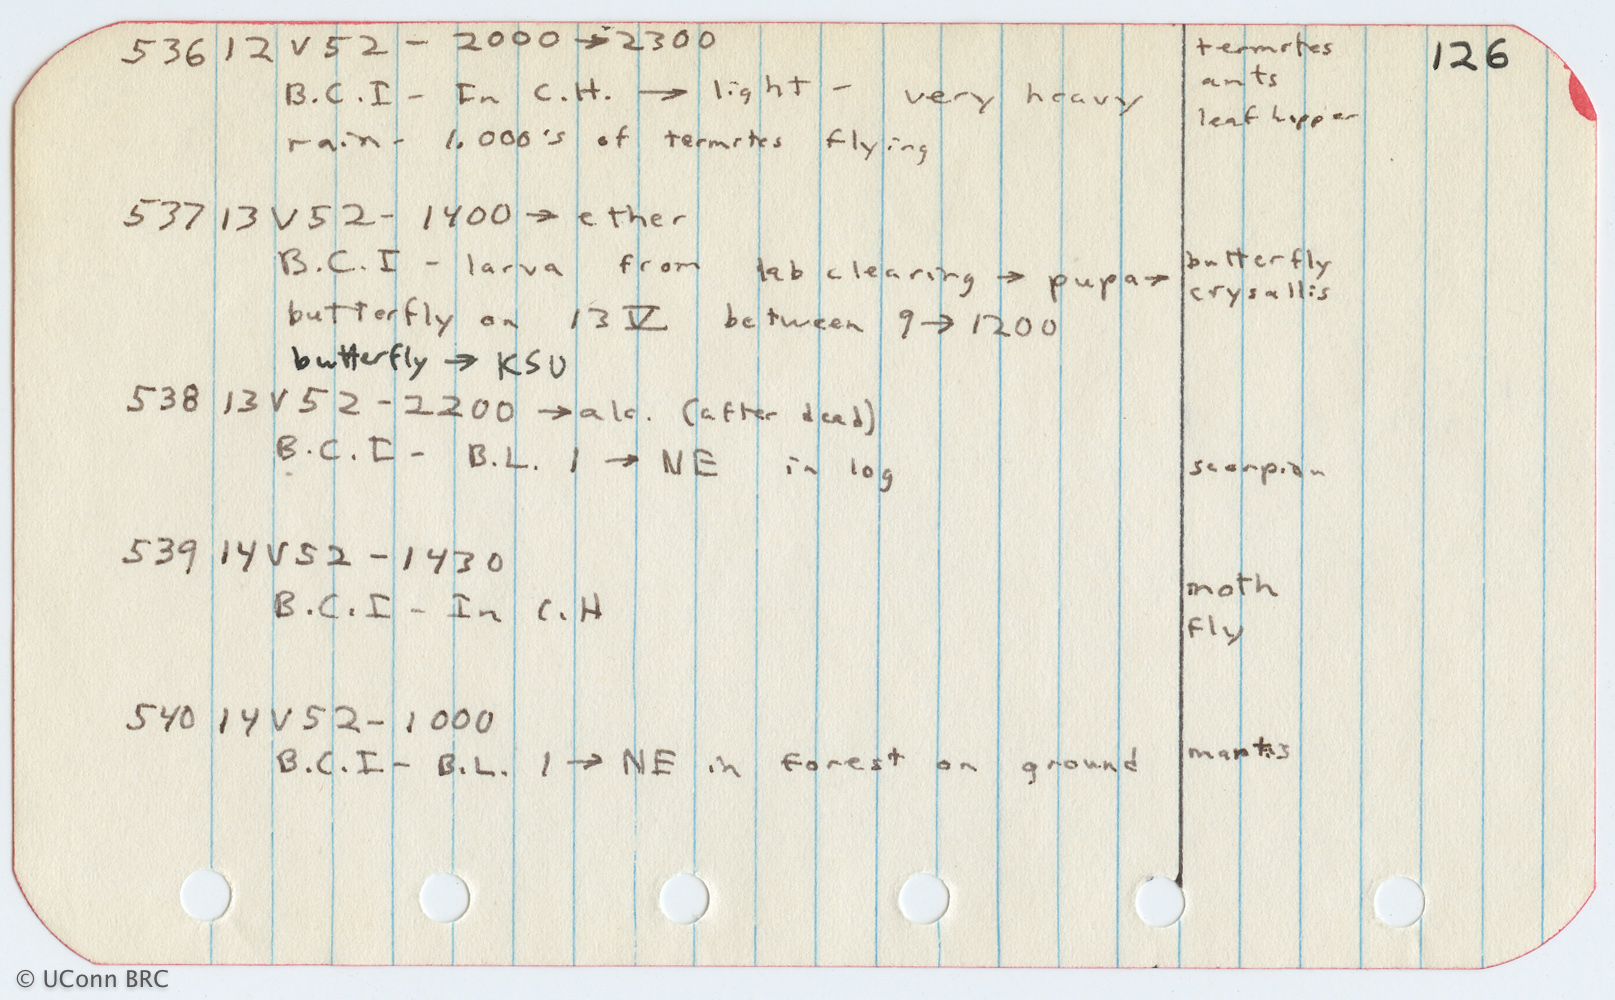 126
536 12 V 52 - 2000 → 2300
termites
B.C.I - In C.H. → light - very heavy
ants
rain - 1,000's of termites flying
leaf hopper
537 13 V 52 - 1400 → ether
B.C.I - larva from lab clearing → pupa →
butterfly
crysallis
butterfly on 13 V between 9 → 1200
butterfly → KSU
538 13 V 52 - 2200 → alc. (after dead)
B.C.I - B.L. 1 → NE in log
scorpion
539 14 V 52 - 1430
B.C.I - In C.H
moth
fly
540 14 V 52 - 1000
B.C.I - B.L. 1 → NE in forest on ground
mantis
© UConn BRC